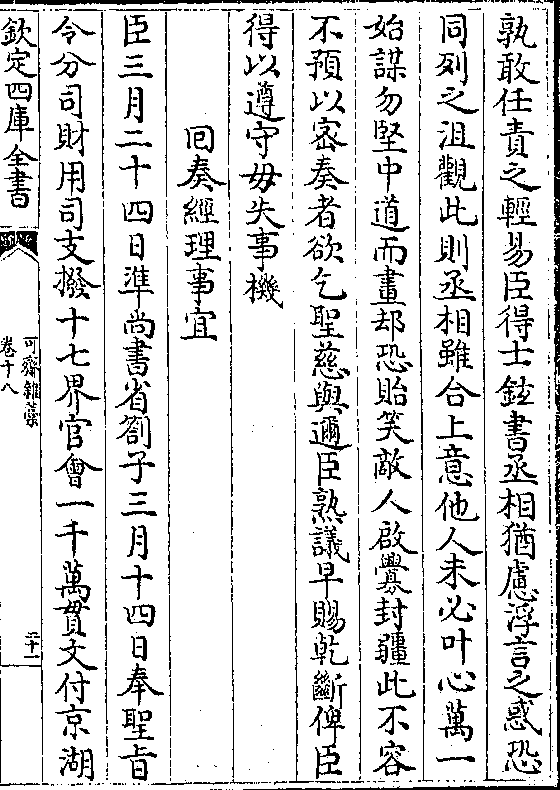 孰敢任責之輕易臣得士𨰥書丞相猶慮浮言之惑恐
同列之沮觀此則丞相雖合上意他人未必叶心萬一
始謀勿堅中道而畫却恐貽笑敵人啟釁封疆此不容
不預以宻奏者欲乞聖慈與邇臣熟議早賜乾斷俾臣
得以遵守毋失事機
回奏經理事宜
臣三月二十四日準尚書省劄子三月十四日奉聖旨
令分司財用司支撥十七界官會一千萬貫文付京湖
欽定四庫全書
可齋雜藁
卷十八
二十一